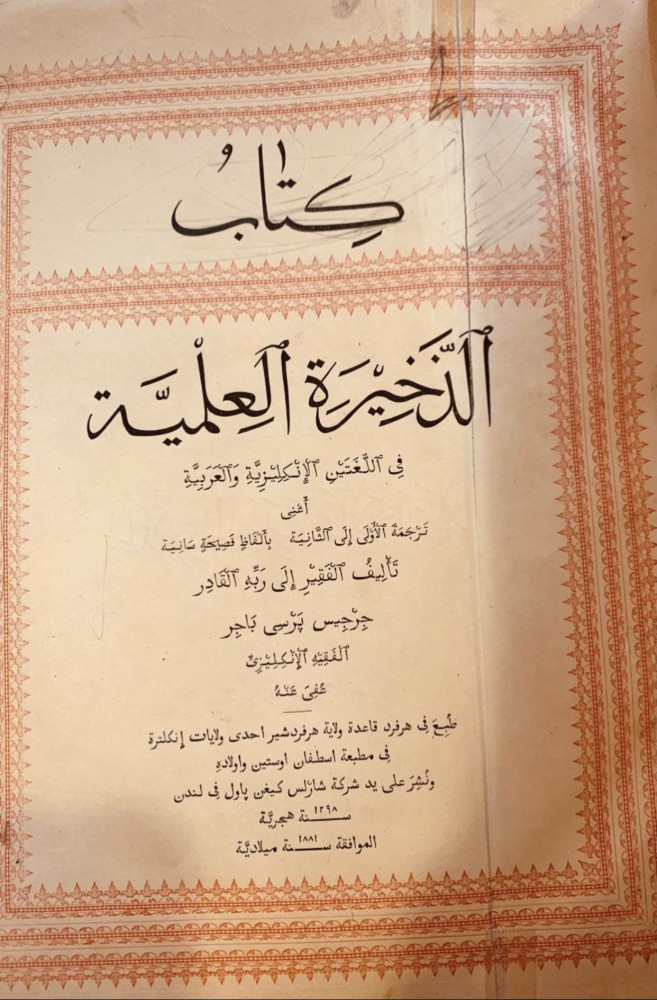 كِتَابُ
الذَّخِيْرَةِ الْعِلْمِيَّة
فِي اللُّغَتَيْنِ الْإِنْكِلِيْزِيَّةِ وَالْعَرَبِيَّةِ
أَعْنِى
تَرْجَمَةَ الْأُوْلَى إِلَى الثَّانِيَة بِأَلْفَاظٍ فَصِيْحَةٍ سَانِيَة
تَأْلِيفُ الْفَقِيْرِ إِلَى رَبِّهِ الْقَادِر
جِرْجِيس پَرْسِى بَاجِر
الْفَقِيْهِ الْإِنْكِلِيْزِىِّ
عُفِىَ عَنْهُ
طُبِعَ فى هرفرد قاعدة ولاية هرفردشير احدى ولايات إنكلترة
فى مطبعة اسطفان اوستين واولاده
ونُشِرَ على يد شركة شارلس كيغن پاول فى لندن
سنة ١٢٩٨ هجريّة
الموافقة سنة ١٨٨١ ميلاديّة